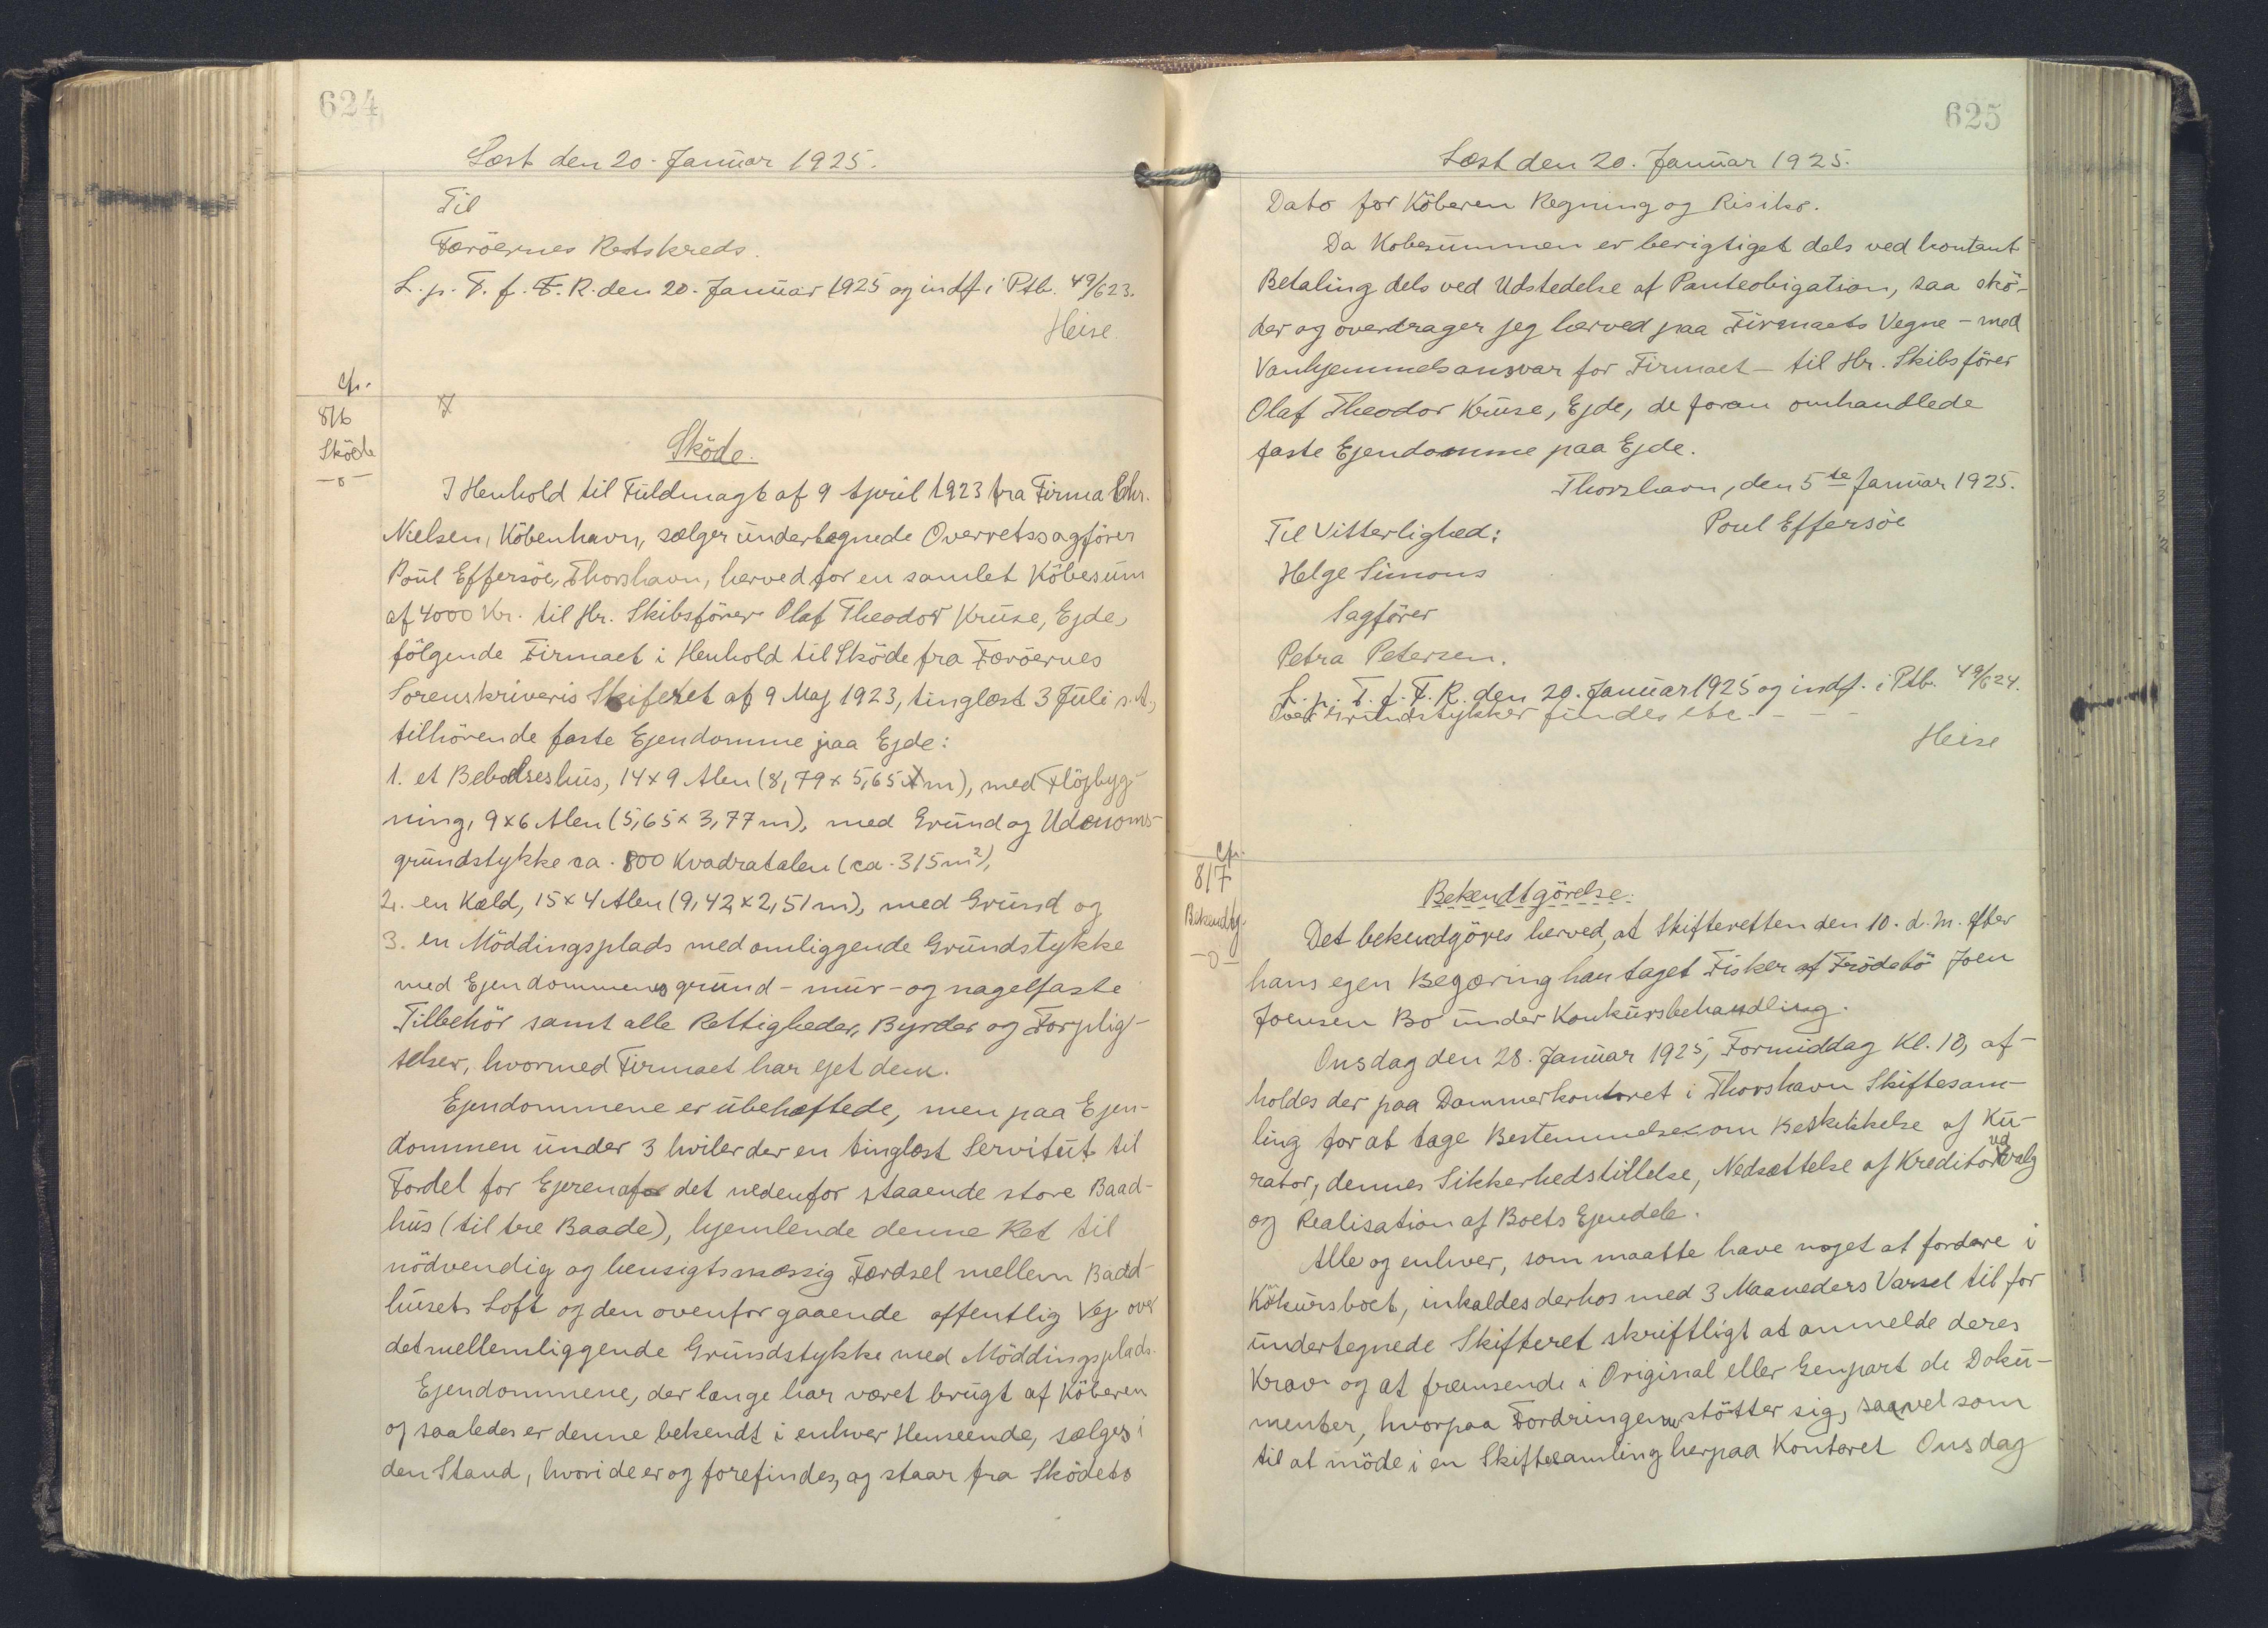 624
Læst den 20. Januar 1925.
Til
Færöernes Retskreds.
L. p. T. f. F. R. den 20. Januar 1925 og indf i Ptb. 49/623.
Heise
cfr.
8/6
Sköde
-o-
Sköde.
I Henhold til Fuldmagt af 9 April 1923 fra Firma Chr.
Nielsen, Köbenhavn, sælger undertegnede Overretssagförer
Poul Effersöe, Thorshavn, herved for en samlet Köbesum
af 4000 Kr. til Hr. Skibsförer Olaf Theodor Kruse, Ejde,
fölgende Firmaet i Henhold til Sköde fra Færöernes
Sorenskriveris Skifteret af 9 Maj 1923, tinglæst 3 Juli s.A.,
tilhörende faste Ejendomme paa Ejde:
1. et Beboelseshus, 14 x 9 Alen (8,79 x 5,65 m), med Flöjbyg-
ning, 9 x 6 Alen (5,65 x 3,77 m), med Grund og Udenoms-
grundstykke ca. 800 Kvadratalen (ca. 315 m²),
2. en Kæld, 15 x 4 Alen (9,42 x 2,51 m), med Grund og
3. en Möddingsplads med omliggende Grundstykke
med Ejendommenes grund- mur- og nagelfaste
Tilbehör samt alle Rettigheder, Byrder og Forplig-
telser, hvormed Firmaet har ejet dem.
Ejendommene er ubehæftede, men paa Ejen-
dommen under 3 hviler der en tinglæst Servitut til
Fordel for Ejeren af det nedenfor staaende store Baad-
hus (til tre Baade), hjemlende denne Ret til
nödvendig og hensigtsmæssig Færdsel mellem Baad-
husets Loft og den ovenfor gaaende offentlig Vej over
det mellemliggende Grundstykke med Möddingsplads.
Ejendommene, der længe har været brugt af Köberen
og saaledes er denne bekendt i enhver Henseende, sælges i
den Stand, hvori de er og forefindes, og staar fra Sködets
625
Læst den 20. Januar 1925.
Dato for Köberen Regning og Risiko.
Da Kobesummen er berigtiget dels ved kontant
Betaling dels ved Udstedelse af Panteobigation, saa skö-
der og overdrager jeg herved paa Firmaets Vegne - med
Vanhjemmelsansvar for Firmaet - til Hr. Skibsförer
Olaf Theodor Kruse, Ejde, de foran omhandlede
faste Ejendomme paa Ejde.
Thorshavn, den 5te Januar 1925.
Til Vitterlighed: Poul Effersöe
Helge Simons
Sagförer
Petra Petersen.
L. p. T. f. F. R. den 20. Januar 1925 og indf. i Ptb. 49/624.
Over Grundstykker findes etc - - - -
Heise
cfr.
8/7
Bekendtg.
-o-
Bekendtgörelse.
Det bekendgöres herved, at Skifteretten den 10. d. M. efter
hans egen Begæring har taget Fisker af Frödebö Joen
Joensen Bo under Konkursbehandling.
Onsdag den 28. Januar 1925, Formiddag Kl. 10, af-
holdes der paa Dommerkontoret i Thorshavn Skiftesam-
ling for at tage Bestemmelse om Beskikkelse af Ku-
rator, dennes Sikkerhedstillelse, Nedsættelse af Kreditorudvalg
og Realisation af Boets Ejendele.
Alle og enhver, som maatte have noget at fordere i
Kökursboet, inkaldes derhos med 3 Maaneders Varsel til for
undertegnede Skifteret skriftligt at anmelde deres
Krav og at fremsende i Original eller Genpart de Doku-
menter, hvorpaa Fordringen stötter sig, saavel som
til at möde i en Skiftesamling herpaa Kontoret Onsdag